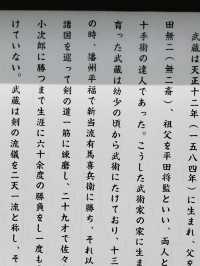 武蔵は天正十二年（一五八四年）に生まれ、父を
田無二（無二斎）、祖父を平田将監といい、両人と
十手術の達人であった。こうした武術家の家に生ま
育った武蔵は幼少の頃から武術にたけており、十三
の時、播州平福で新当流有馬喜兵衛に勝ち、それ以
諸国を巡って剣の道一筋に錬磨し、二十九才で佐々
小次郎に勝つまで生涯に六十余度の勝負をし一度も
けていない。武蔵は剣の流儀を二天一流と称し、そ